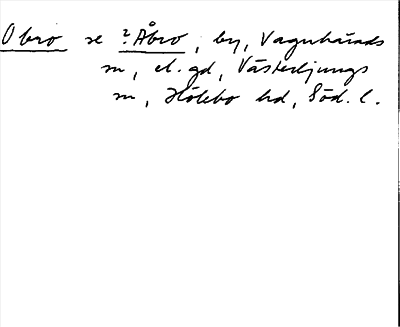 Obro se ?Åbro, by, Vagnhärads
sn, el. gd, Västerljungs
sn, Hölebo hd, Söd. l.